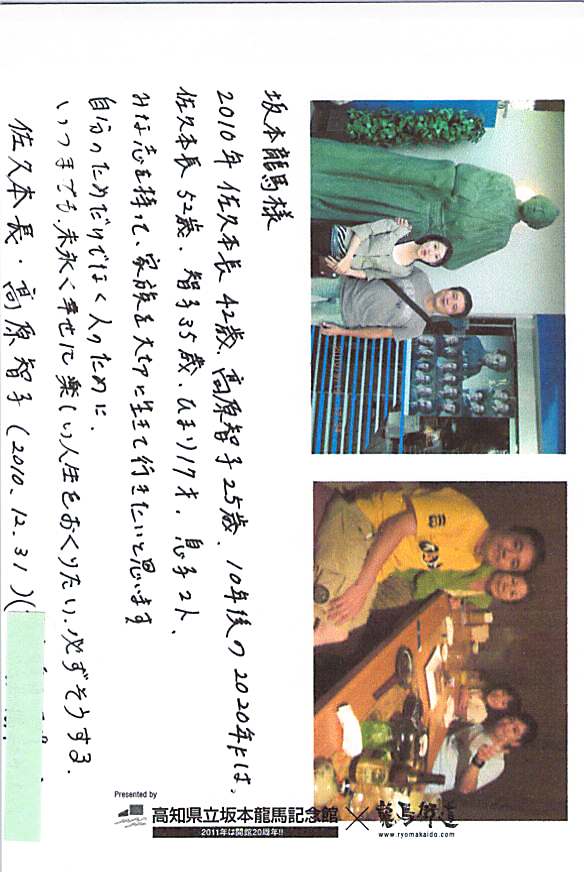 坂本龍馬様
2010年 佐久本長 42歳、高原智子 25歳、10年後の2020年には、
佐久本長 52歳、智子35歳、ひまり17才、息子2人、
みな志を持って、家族を大切に生きて行きたいと思います
自分のためだけでなく人のために、
いつまでも、末永く幸せに楽しい人生をおくりたい、必ずそうする.
佐久本長・高原智子 (2010、12、31)(
Presented by
高知県立坂本龍馬記念館
2011年は開館20周年!!
×
龍馬街道
www.ryomakaido.com